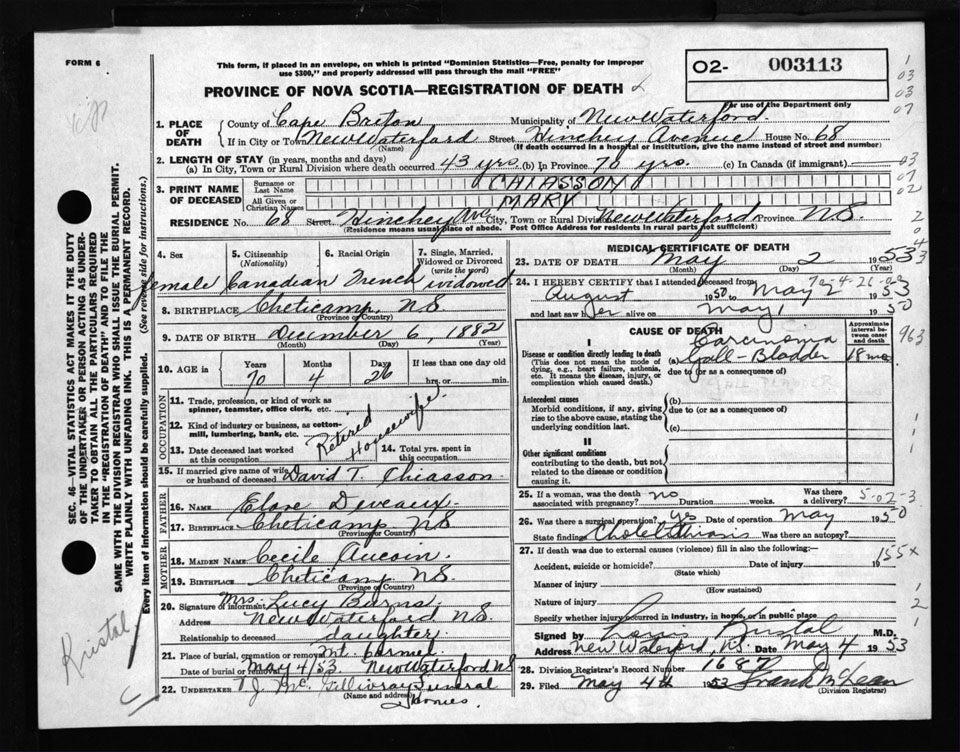 FORM 6
This form, if placed in an envelope, on which is printed "Dominion Statistics—Free, penalty for improper
use $300," and properly addressed will pass through the mail "FREE"
02- 003113
For use of the Department only
PROVINCE OF NOVA SCOTIA—REGISTRATION OF DEATH
1. PLACE OF DEATH
County of Cape Breton Municipality of New Waterford.
If in City or Town New Waterford Street Hinchey Avenue House No. 68
(Name) (If death occurred in a hospital or institution, give the name instead of street and number)
2. LENGTH OF STAY (in years, months and days)
(a) In City, Town or Rural Division where death occurred 43 yrs. (b) In Province 70 yrs. (c) In Canada (if immigrant)
3. PRINT NAME OF DECEASED
Surname or Last Name CHIASSON
All Given or Christian Names MARY
RESIDENCE No. 68 Street Hinchey Ave City, Town or Rural Division New Waterford Province N.S.
(Residence means usual place of abode. Post Office Address for residents in rural parts not sufficient)
4. Sex 5. Citizenship (Nationality) 6. Racial Origin 7. Single, Married, Widowed or Divorced (write the word)
female Canadian French widowed
8. BIRTHPLACE Cheticamp N.S.
(Province or Country)
9. DATE OF BIRTH December 6, 1882
(Month) (Day) (Year)
10. AGE in Years Months Days If less than one day old
70 4 26 hrs. or min.
OCCUPATION
11. Trade, profession, or kind of work as spinner, teamster, office clerk, etc.
12. Kind of industry or business, as cotton-mill, lumbering, bank, etc.
Retired Housewife
13. Date deceased last worked at this occupation
14. Total yrs. spent in this occupation
15. If married give name of wife or husband of deceased David T. Chiasson
FATHER
16. NAME Deveaux
17. BIRTHPLACE Cheticamp N.S.
(Province or Country)
MOTHER
18. MAIDEN NAME Cecile Aucoin.
19. BIRTHPLACE Cheticamp N.S.
(Province or Country)
20. Signature of informant Mrs. Lucy Burns
Address New Waterford N.S.
Relationship to deceased daughter
21. Place of burial, cremation or removal Mt. Carmel
Date of burial or removal May 4/53 New Waterford N.S.
22. UNDERTAKER Funeral Homes.
(Name and address)
MEDICAL CERTIFICATE OF DEATH
23. DATE OF DEATH May 2 1953
(Month) (Day) (Year)
24. I HEREBY CERTIFY that I attended deceased from
August 1950 to May 2 1953
and last saw her alive on May 1 1950
CAUSE OF DEATH
Approximate interval between onset and death
I
Disease or condition directly leading to death
(This does not mean the mode of dying, e.g., heart failure, asthenia, etc. It means the disease, injury, or complication which caused death.)
(a) Carcinoma Gall-Bladder 18 mo
due to (or as a consequence of)
Antecedent causes
Morbid conditions, if any, giving rise to the above cause, stating the underlying condition last.
(b)
due to (or as a consequence of)
(c)
II
Other significant conditions
contributing to the death, but not related to the disease or condition causing it.
25. If a woman, was the death associated with pregnancy? no Duration weeks. Was there a delivery?
5-02-3
26. Was there a surgical operation? yes Date of operation May 1950
State findings Cholelithiasis Was there an autopsy?
27. If death was due to external causes (violence) fill in also the following:—
Accident, suicide or homicide? Date of injury 19
(State which)
155x
Manner of injury
(How sustained)
Nature of injury
Specify whether injury occurred in industry, in home, or in public place
Signed by M.D.
Address New Waterford, N.S. Date May 4 1953
28. Division Registrar's Record Number 1687
29. Filed May 4th 1953 Frank McLean
(Division Registrar)
SEC. 46—VITAL STATISTICS ACT MAKES IT THE DUTY
OF THE UNDERTAKER OR PERSON ACTING AS UNDER-
TAKER TO OBTAIN ALL THE PARTICULARS REQUIRED
IN THE "REGISTRATION OF DEATH" AND TO FILE THE
SAME WITH THE DIVISION REGISTRAR WHO SHALL ISSUE THE BURIAL PERMIT.
WRITE PLAINLY WITH UNFADING INK. THIS IS A PERMANENT RECORD.
Every item of Information should be carefully supplied. (See reverse side for instructions.)
Kristal
1
03
03
07
03
07
02
2
0
4
3
963
1
1
1
2